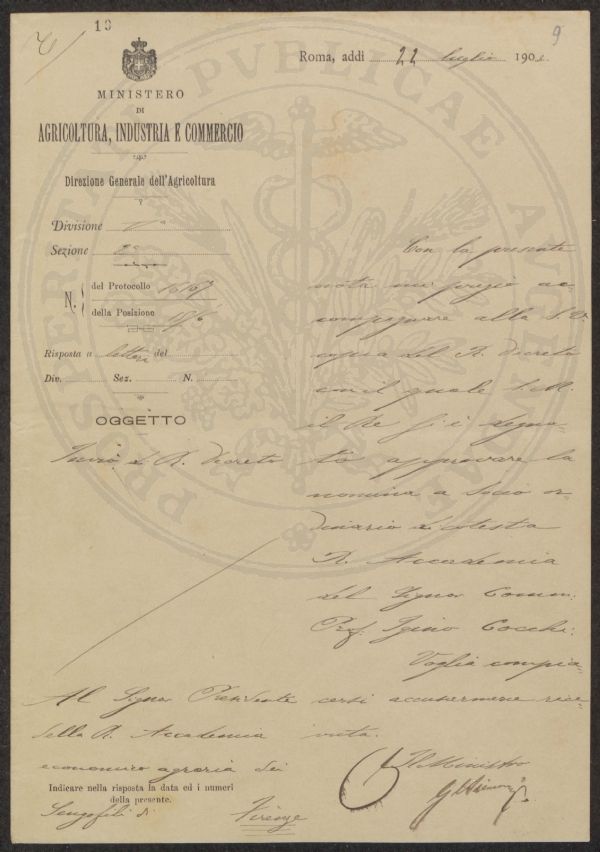 13
9
Roma, addì 22 luglio 1903
MINISTERO
DI
AGRICOLTURA, INDUSTRIA E COMMERCIO
Direzione Generale dell'Agricoltura
Divisione Vª
Sezione 2ª
N. del Protocollo 15167
della Posizione
Risposta a lettera del
Div. Sez. N.
OGGETTO
Invio di R. Decreto
Con la presente
nota mi pregio ac-
compagnare alla S.V.
copia del R. Decreto
con il quale S.M.
il Re si è degna-
to approvare la
nomina a Socio or-
dinario di codesta
R. Accademia
del Signor Comm.
Prof. Igino Cocchi.
Voglia compia-
cersi accusarmene rice-
vuta.
Il Ministro
Al Signor Presidente
della R. Accademia
economico agraria dei
Georgofili di
Firenze
Indicare nella risposta la data ed i numeri
della presente.
PROSPERITATI PVBLICAE AVGENDAE